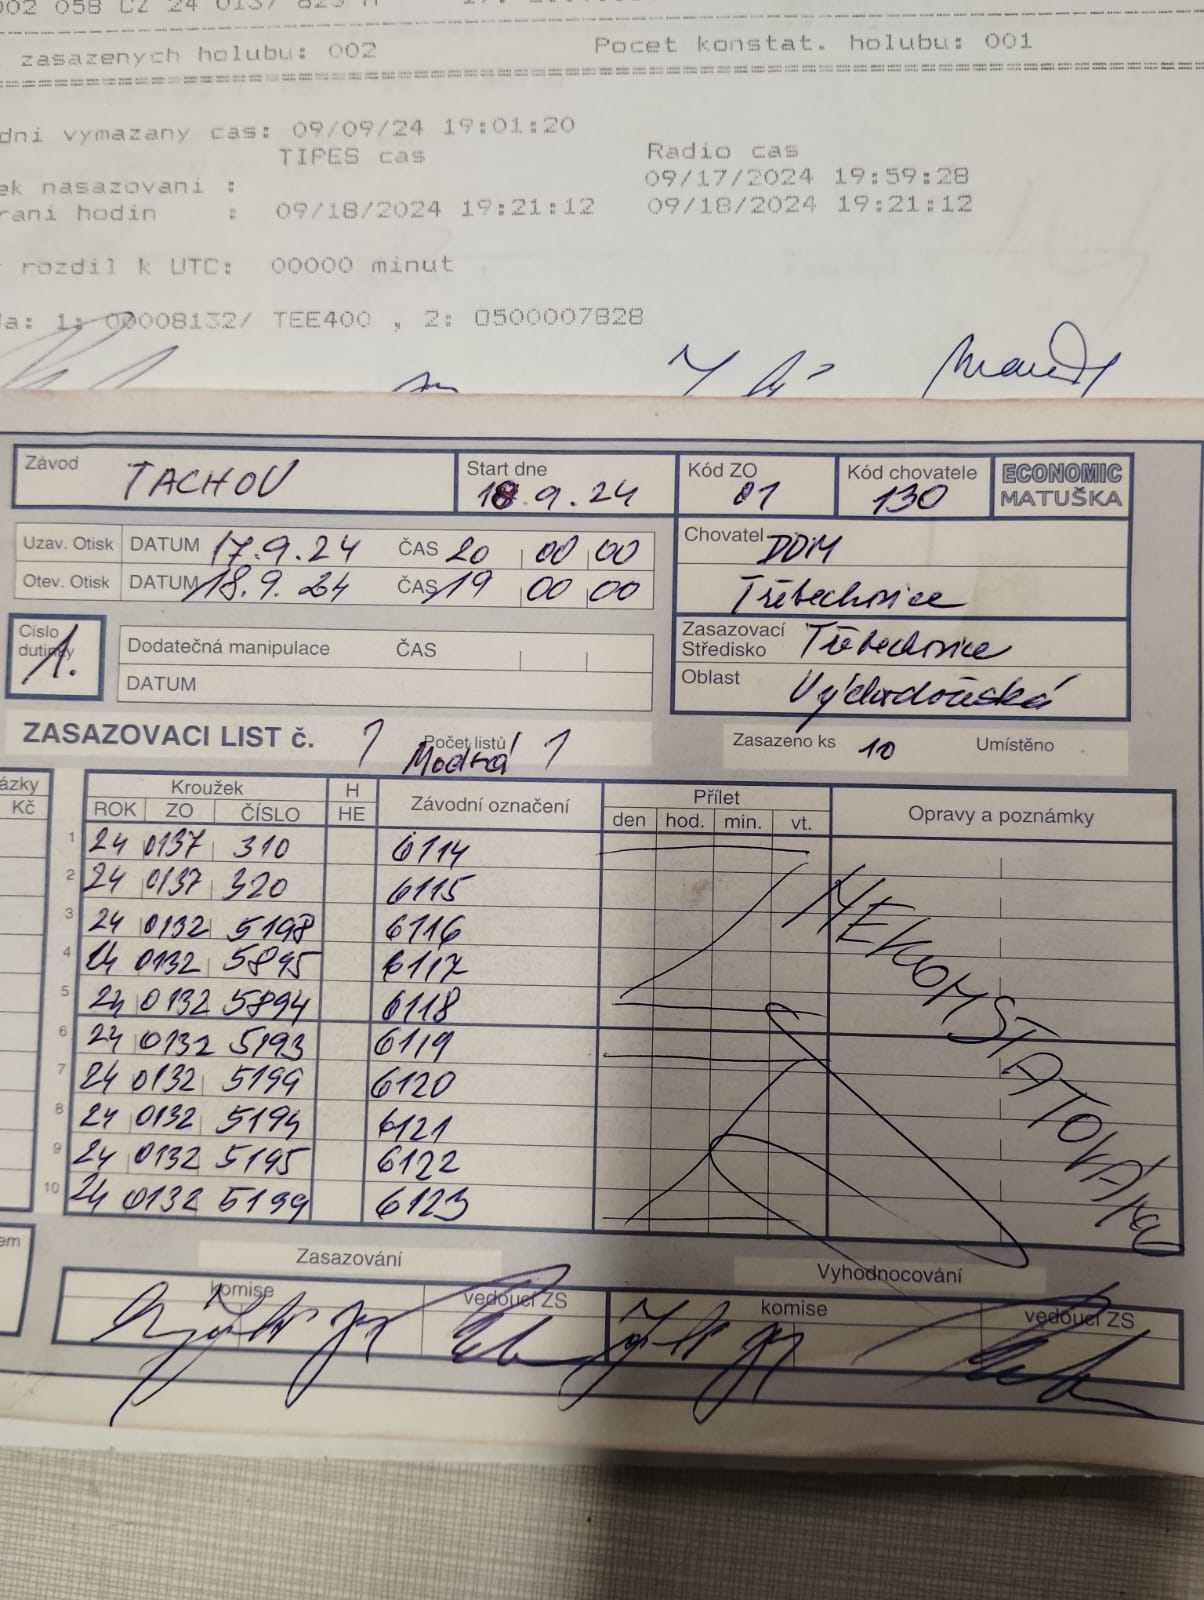 002 058 CZ 24 0137 825 M
zasazenych holubu: 002 Pocet konstat. holubu: 001
dni vymazany cas: 09/09/24 19:01:20
TIPES cas Radio cas
ek nasazovani : 09/17/2024 19:59:28
rani hodin : 09/18/2024 19:21:12 09/18/2024 19:21:12
rozdil k UTC: 00000 minut
da: 1: 00008132/ TEE400 , 2: 0500007828
Závod TACHOV Start dne 18.9.24 Kód ZO 01 Kód chovatele 130 ECONOMIC MATUŠKA
Uzav. Otisk DATUM 17.9.24 ČAS 20 00 00 Chovatel DDM
Otev. Otisk DATUM 18.9.24 ČAS 19 00 00 Třebechovice
Číslo dutinky 1. Dodatečná manipulace ČAS Zasazovací Středisko Třebechovice
DATUM Oblast Východočeská
ZASAZOVACI LIST č. 1 Počet listů 1 Zasazeno ks 10 Umístěno
Modrá
ázky Kroužek H Závodní označení Přílet Opravy a poznámky
Kč ROK ZO ČÍSLO HE den hod. min. vt.
1 24 0137 310 6114
2 24 0137 320 6115
3 24 0132 5198 6116
4 24 0132 5895 6117
5 24 0132 5894 6118
6 24 0132 5193 6119
7 24 0132 5199 6120
8 24 0132 5194 6121
9 24 0132 5195 6122
10 24 0132 5199 6123
NEKONSTATOVÁNO
em Zasazování Vyhodnocování
komise vedoucí ZS komise vedoucí ZS